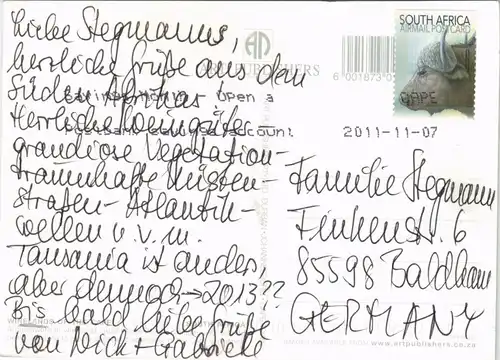 Liebe Stegmanns,
herzliche Grüße aus dem
Süden Afrikas!
Herrliche Weingüter
grandiose Vegetation-
traumhafte Küsten-
straßen-Atlantik-
wellen u.v.m.
Tansania ist anders,
aber dennoch → 2013??
Bis bald liebe Grüße
von Nick + Gabriele
Open a
account
ART PUBLISHERS
6 001873 0
SOUTH AFRICA
AIRMAIL POSTCARD
CAPE
2011-11-07
Familie Stegmann
Finkenstr. 6
85598 Baldham
GERMANY
www.artpublishers.co.za